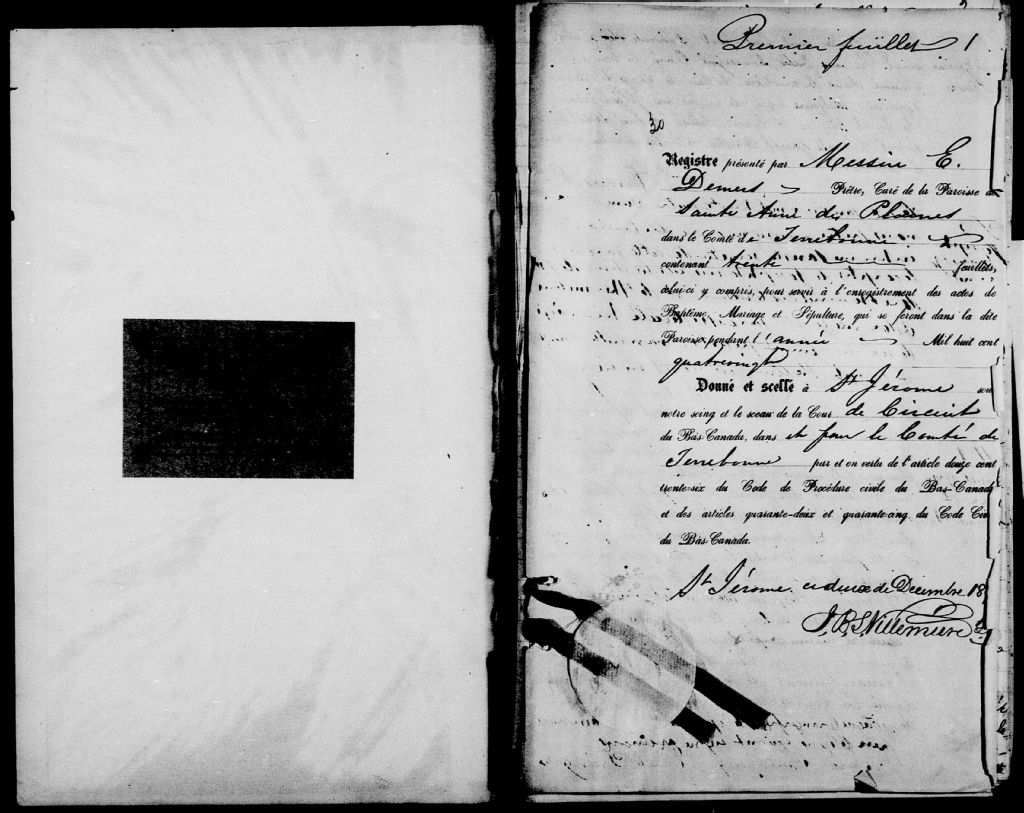 Premier feuillet 1
30
Registre présenté par Messire E.
Demers Prêtre, Curé de la Paroisse de
Sainte Anne des Plaines
dans le Comté de Terrebonne
contenant trente feuillets,
celui-ci y compris, pour servir à l'enregistrement des actes de
Baptême, Mariage et Sépulture, qui se feront dans la dite
Paroisse, pendant l'année Mil huit cent
quatrevingt
Donné et scellé à St Jérome sous
notre seing et le sceau de la Cour de Circuit
du Bas-Canada, dans et pour le Comté de
Terrebonne par et en vertu de l'article douze cent
trente-six du Code de Procédure civile du Bas-Canada
et des articles quarante-deux et quarante-cinq du Code Civil
du Bas-Canada.
St Jérome ce deux de Décembre 18
J. B. S. Villemure